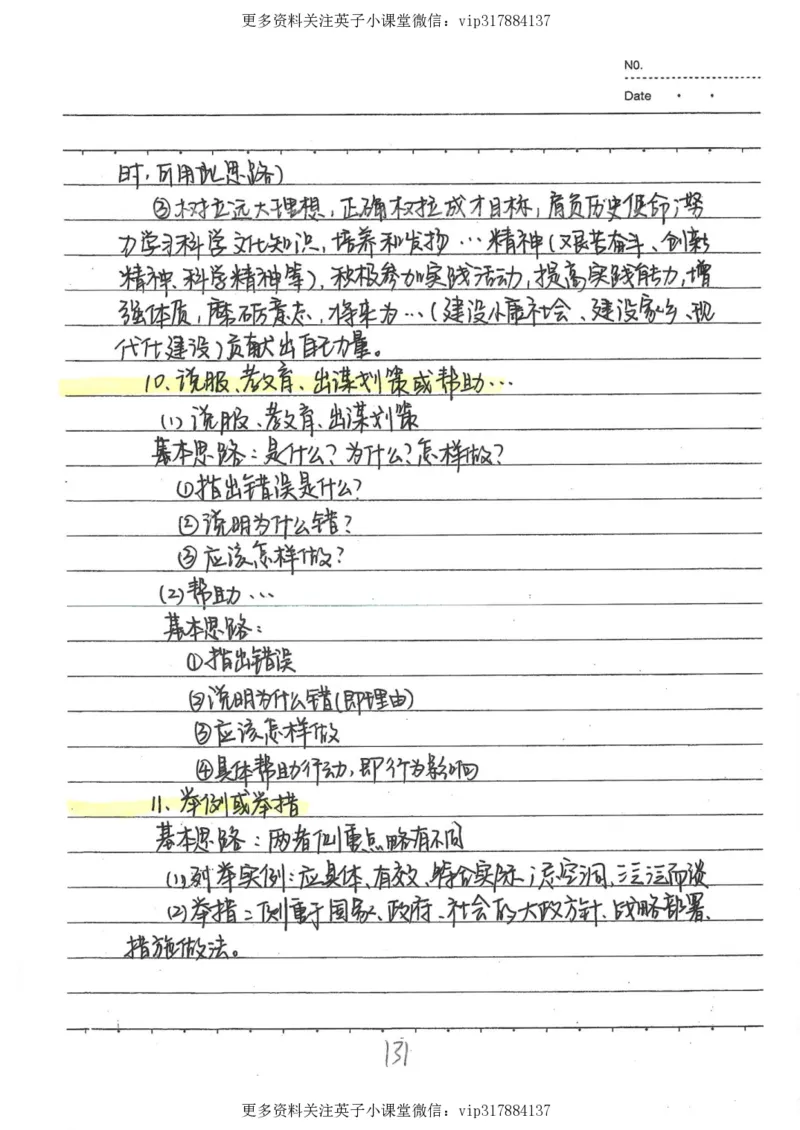 更多资料关注英子小课堂微信：vip317884137
NO.
Date
时，可用此思路）
③树立远大理想，正确树立成才目标，肩负历史使命；努
力学习科学文化知识，培养和发扬…精神（艰苦奋斗、创新
精神、科学精神等），积极参加实践活动，提高实践能力，增
强体质，磨砺意志，将来为…（建设小康社会、建设家乡、现
代化建设）贡献出自己力量。
10、说服、教育、出谋划策或帮助…
（1）说服、教育、出谋划策
基本思路：是什么？为什么？怎样做？
①指出错误是什么？
②说明为什么错？
③应该怎样做？
（2）帮助…
基本思路：
①指出错误
②说明为什么错（即理由）
③应该怎样做
④具体帮助行动，即行为影响
11、举例或举措
基本思路：两者侧重点略有不同
（1）列举实例：应具体、有效、符合实际，忌空洞、泛泛而谈
（2）举措：侧重于国家、政府、社会的大政方针、战略部署、
措施做法。
131
更多资料关注英子小课堂微信：vip317884137